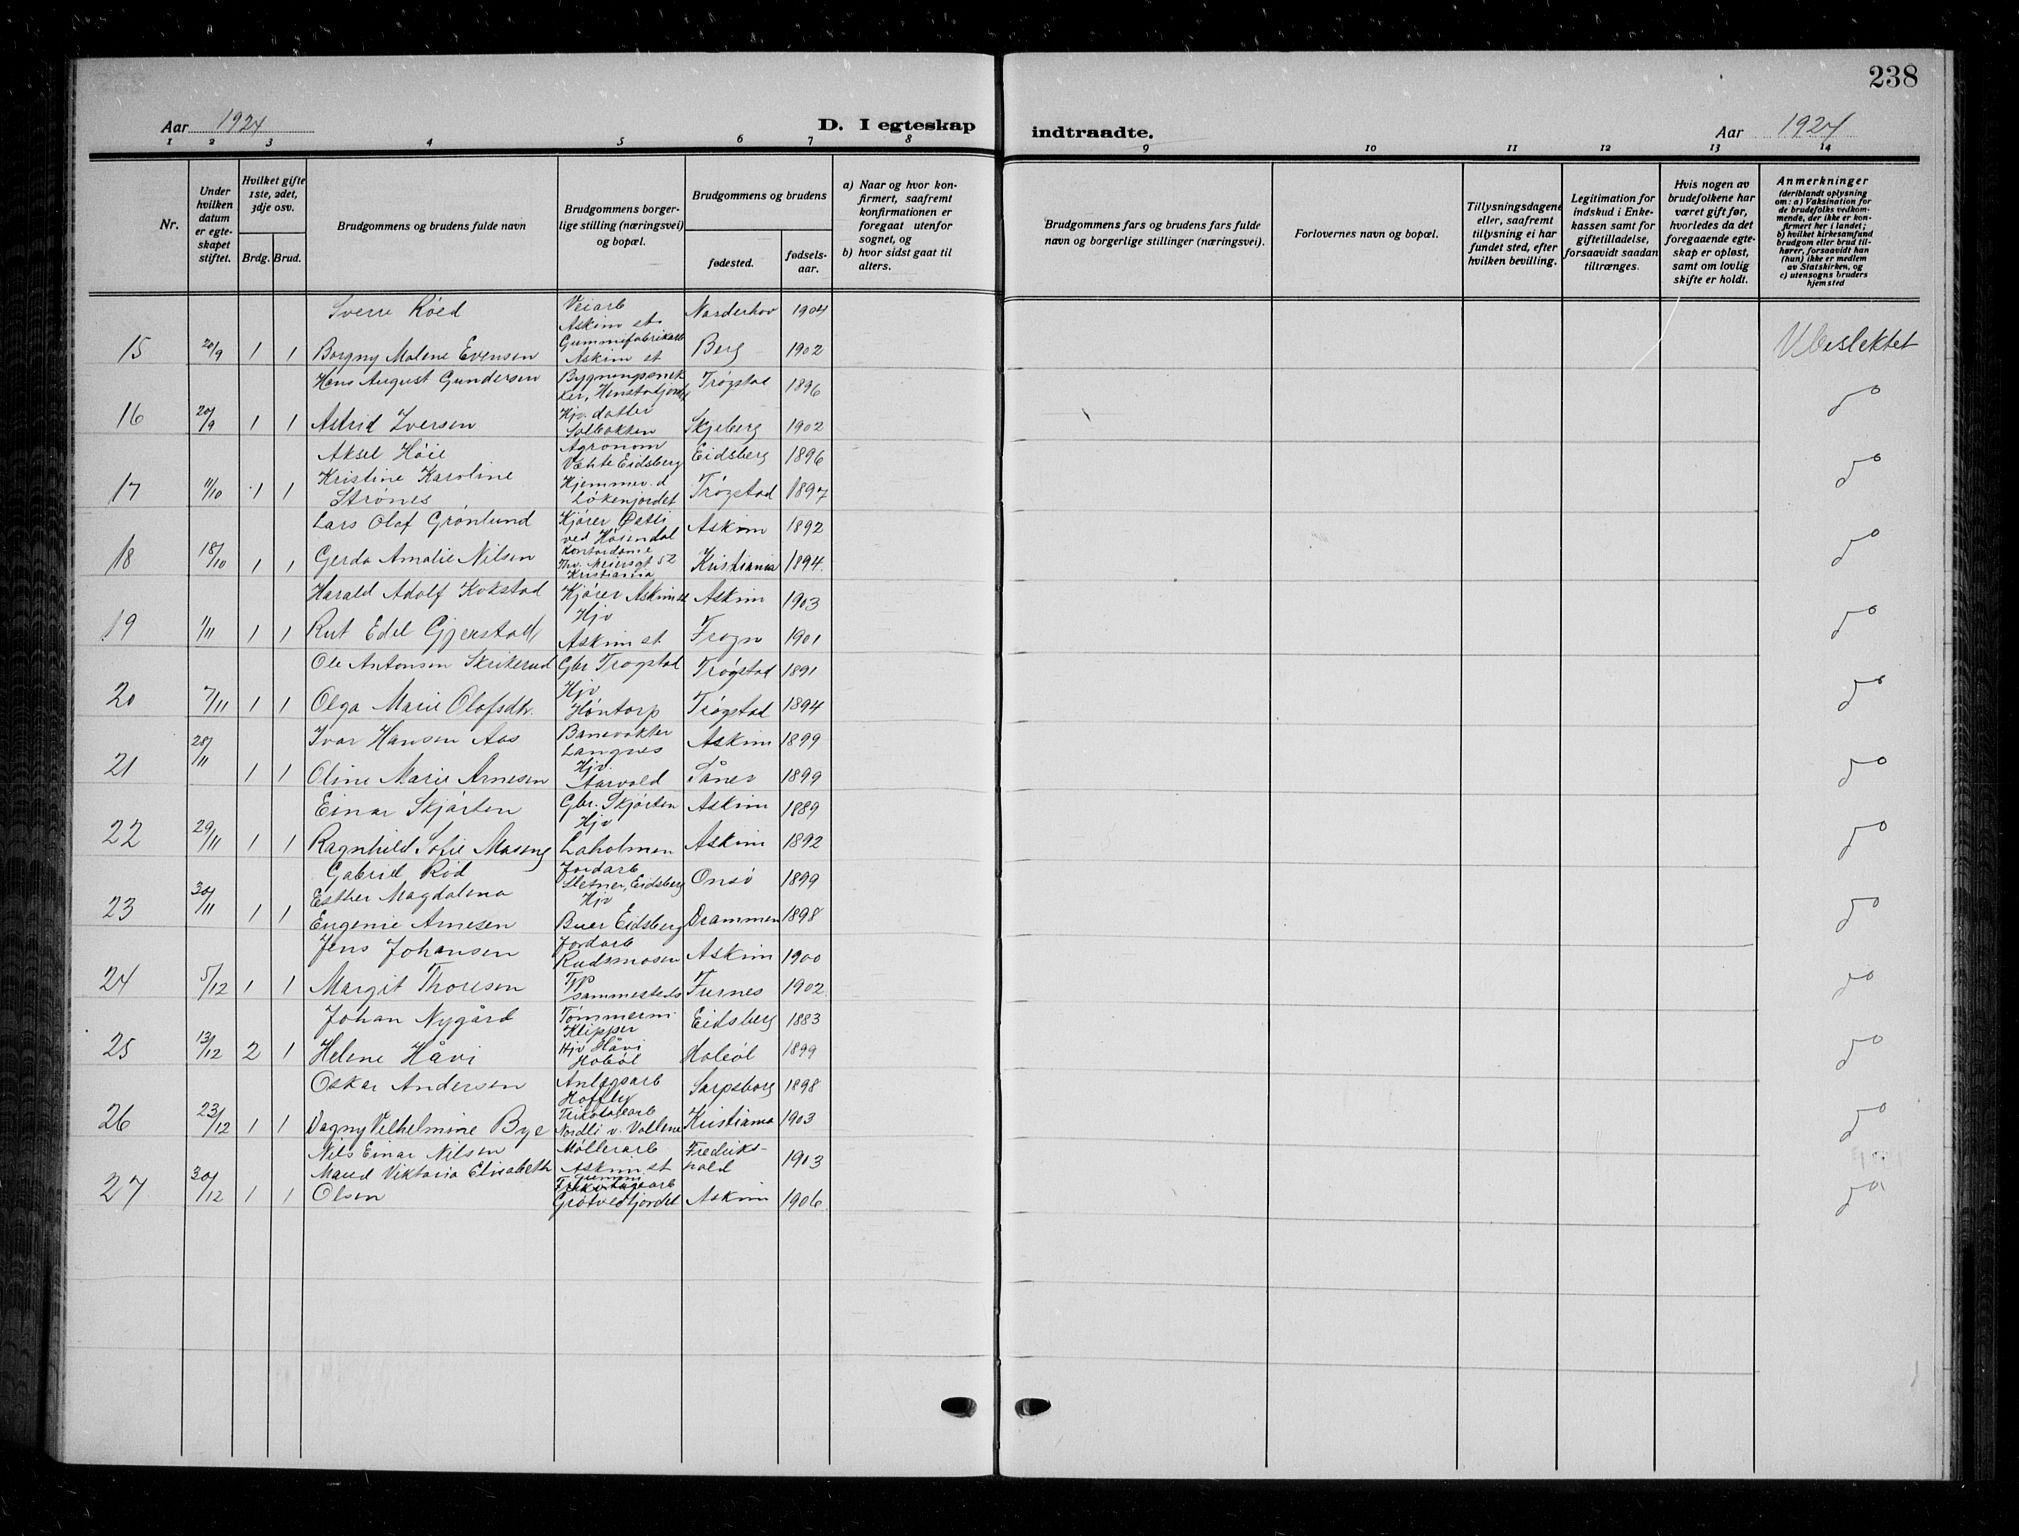 238
Aar 1924
D. I egteskap
indtraadte.
Aar 1924
1 2 3 4 5 6 7 8 9 10 11 12 13 14
Nr.
Under hvilken datum er egteskapet stiftet.
Hvilket gifte 1ste, 2det, 3dje osv.
Brdg. Brud.
Brudgommens og brudens fulde navn
Brudgommens borgerlige stilling (næringsvei) og bopæl.
Brudgommens og brudens
fødested.
fødselsaar.
a) Naar og hvor konfirmert, saafremt konfirmationen er foregaat utenfor sognet, og
b) hvor sidst gaat til alters.
Brudgommens fars og brudens fars fulde navn og borgerlige stillinger (næringsvei).
Forlovernes navn og bopæl.
Tillysningsdagene eller, saafremt tillysning ei har fundet sted, efter hvilken bevilling.
Legitimation for indskud i Enkekassen samt for giftetilladelse, forsaavidt saadan tiltrænges.
Hvis nogen av brudefolkene har været gift før, hvorledes da det foregaaende egteskap er opløst, samt om lovlig skifte er holdt.
Anmerkninger
(deriblandt oplysning om: a) Vaksination for de brudefolks vedkommende, der ikke er konfirmert her i landet;
b) hvilket kirkesamfund brudgom eller brud tilhører, forsaavidt han (hun) ikke er medlem av Statskirken, og
c) utensogns bruders hjemsted
Sverre Røed Veiarb Askim st Norderhov 1904
15 20/9 1 1 Borgny Malene Evensen Gummifabrikarb Askim st Berg 1902 Ubeslektet
Hans August Gundersen Bygningssnekker, Henstadjordet Trøgstad 1896
16 20/9 1 1 Astrid Iversen Hjv. datter Solbakken Skjeberg 1902 do
Aksel Høie Agronom Vahte Eidsberg Eidsberg 1896
17 11/10 1 1 Kristine Karoline Strønes Hjemmev. d Løkenjordet Trøgstad 1897 do
Lars Olaf Grønlund Kjører Østli ved Høsendal Askim 1892
18 18/10 1 1 Gerda Amalie Nilsen Kontordame Thv. Meiersgt 52 Kristiania Kristiania 1894 do
Harald Adolf Kokstad Kjører Askim st Askim 1903
19 1/11 1 1 Rut Edel Gjerstad Hjv Askim st Frogn 1901 do
Ole Antonsen Skrikerud Gbr Trøgstad Trøgstad 1891
20 7/11 1 1 Olga Marie Olafsdtr. Hjv Høntorp Trøgstad 1894 do
Ivar Hansen Aas Banevokter Langnes Askim 1899
21 28/11 1 1 Oline Marie Arnesen Hjv. Aarvold Såner 1899 do
Einar Skjørten Gbr. Skjørten Askim 1889
22 29/11 1 1 Ragnhild Sofie Moseng Hjv Laholmen Askim 1892 do
Gabriel Rød Jordarb Sletner, Eidsberg Onsø 1899
23 30/11 1 1 Esther Magdalena Eugenie Arnesen Hjv Buer Eidsberg Drammen 1898 do
Jens Johansen Jordarb Rudsmosen Askim 1900
24 5/12 1 1 Margit Thoresen Tjp sammesteds Furnes 1902 do
Johan Nygård Tømmerm Klipper Eidsberg 1883
25 13/12 2 1 Helene Håvi Hjv Håvi Hobøl Hobøl 1899 do
Oskar Andersen Anlegsarb Hoffby Sarpsborg 1898
26 23/12 1 1 Dagny Vilhelmine Bye Trikotagearb Nordli v. Vollene Kristiania 1903 do
Nils Einar Nilsen Møllerarb Askim st Fredrikshald 1903
27 30/12 1 1 Maud Viktoria Elisabeth Olsen Gummiarb Grøtvedtjordet Askim 1906 do